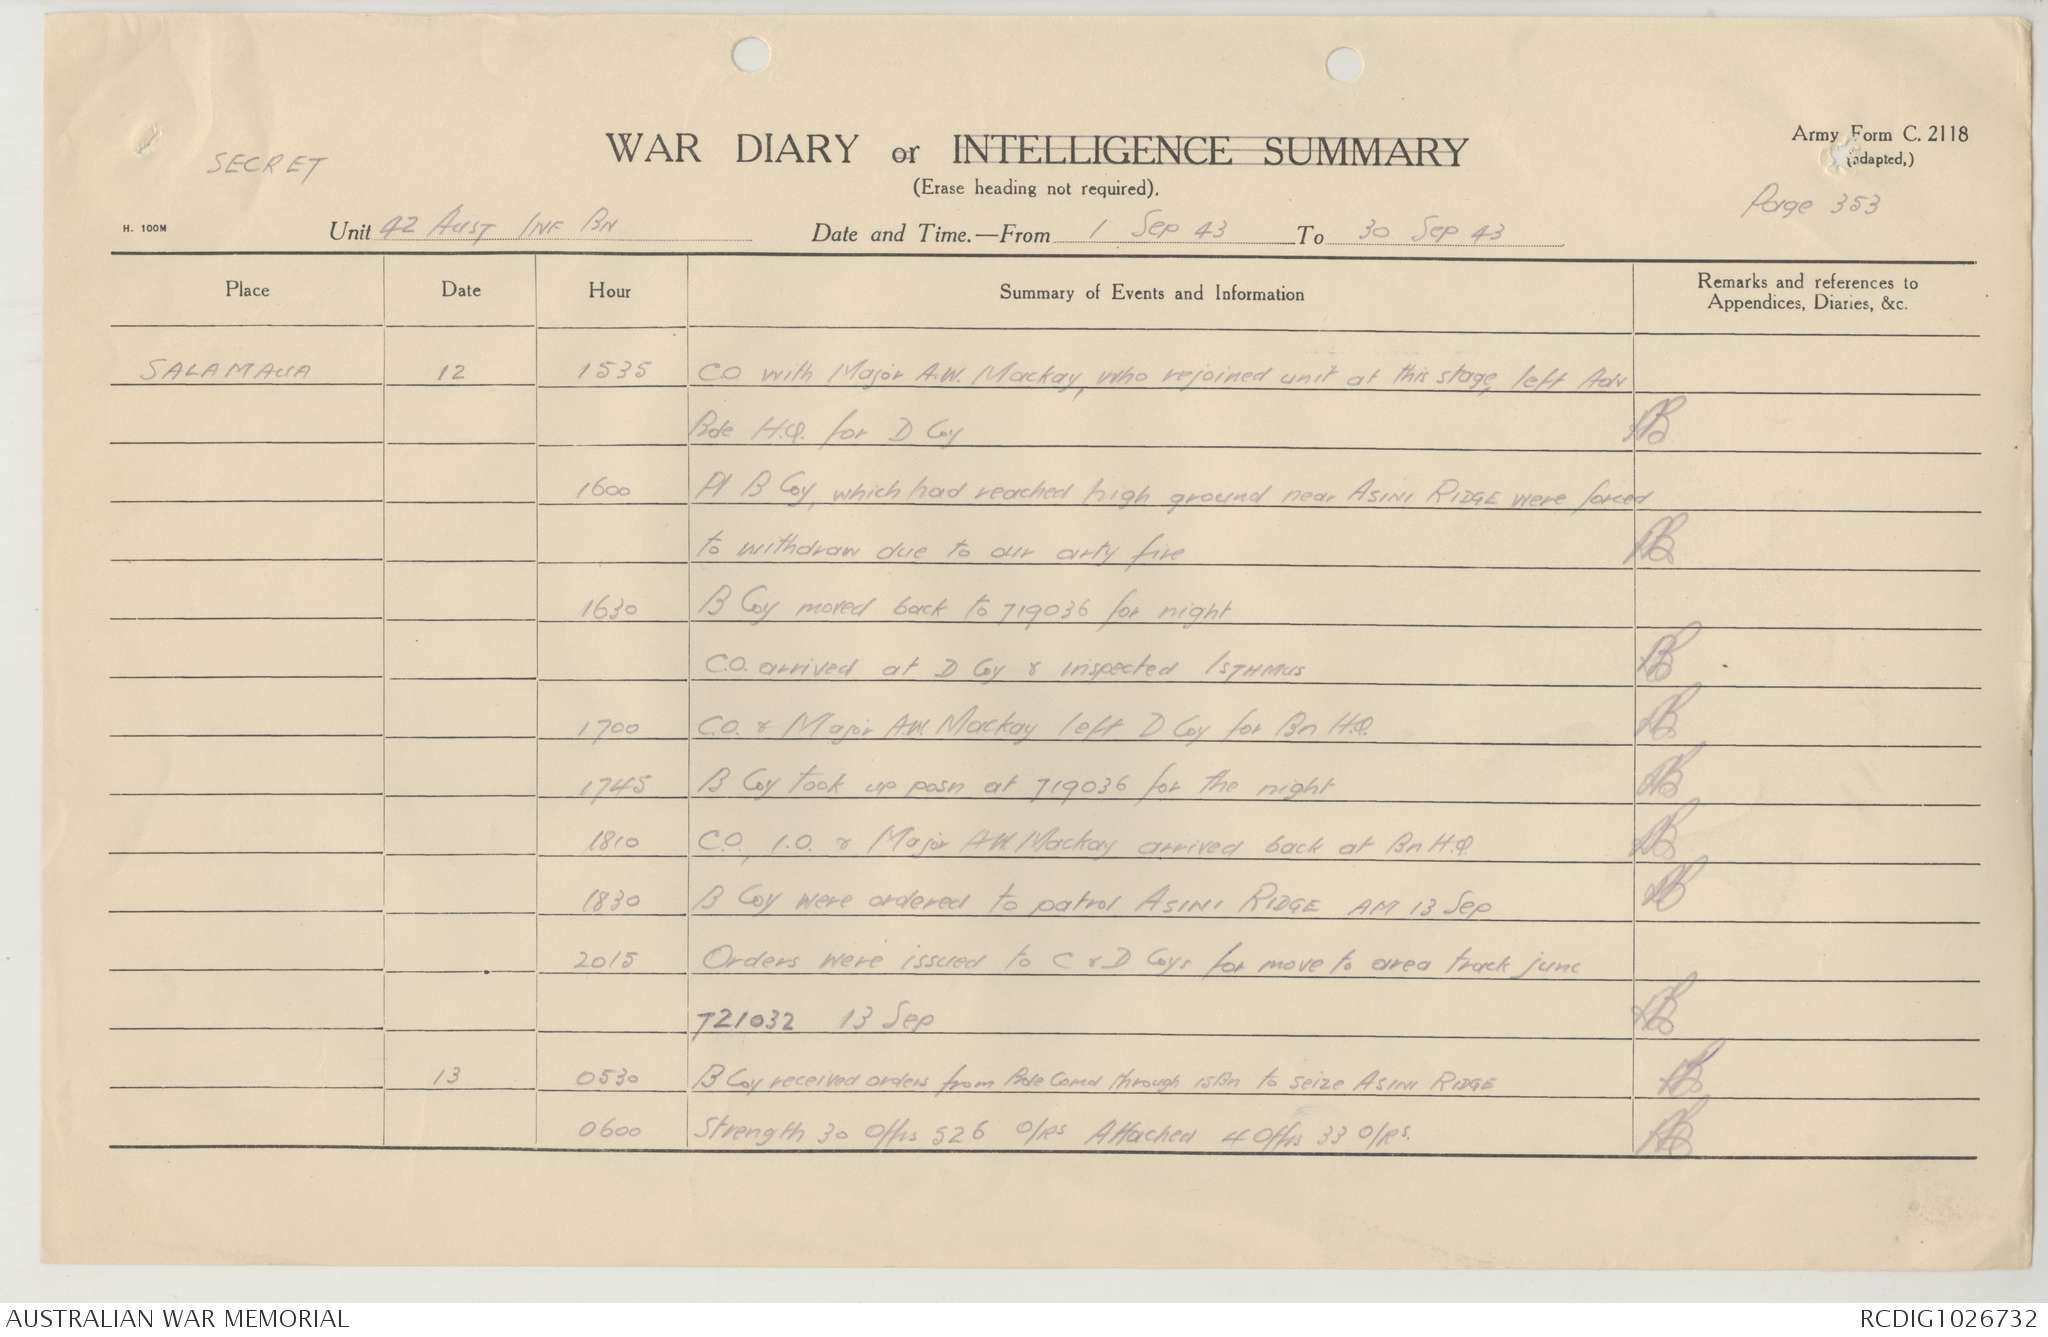 SECRET
WAR DIARY or INTELLIGENCE SUMMARY
(Erase heading not required).
Army Form C. 2118
(adapted,)
Page 353
H. 100M
Unit 42 AUST INF BN Date and Time.—From 1 Sep 43 To 30 Sep 43
Place Date Hour Summary of Events and Information Remarks and references to Appendices, Diaries, &c.
SALAMAUA 12 1535 CO with Major A.W. Mackay, who rejoined unit at this stage, left Adv
Bde H.Q. for D Coy
1600 Pl B Coy, which had reached high ground near ASINI RIDGE were forced
to withdraw due to our arty fire
1630 B Coy moved back to 719036 for night
C.O. arrived at D Coy & inspected ISTHMUS
1700 C.O. & Major A.W. Mackay left D Coy for Bn H.Q.
1745 B Coy took up posn at 719036 for the night
1810 C.O., I.O. & Major A.W. Mackay arrived back at Bn H.Q
1830 B Coy were ordered to patrol ASINI RIDGE AM 13 Sep
2015 Orders were issued to C & D Coys for move to area track junc
721032 13 Sep
13 0530 B Coy received orders from Bde Comd through 15Bn to seize ASINI RIDGE
0600 Strength 30 Offrs 526 O/Rs Attached 4 Offrs 33 O/Rs.
AUSTRALIAN WAR MEMORIAL
RCDIG1026732